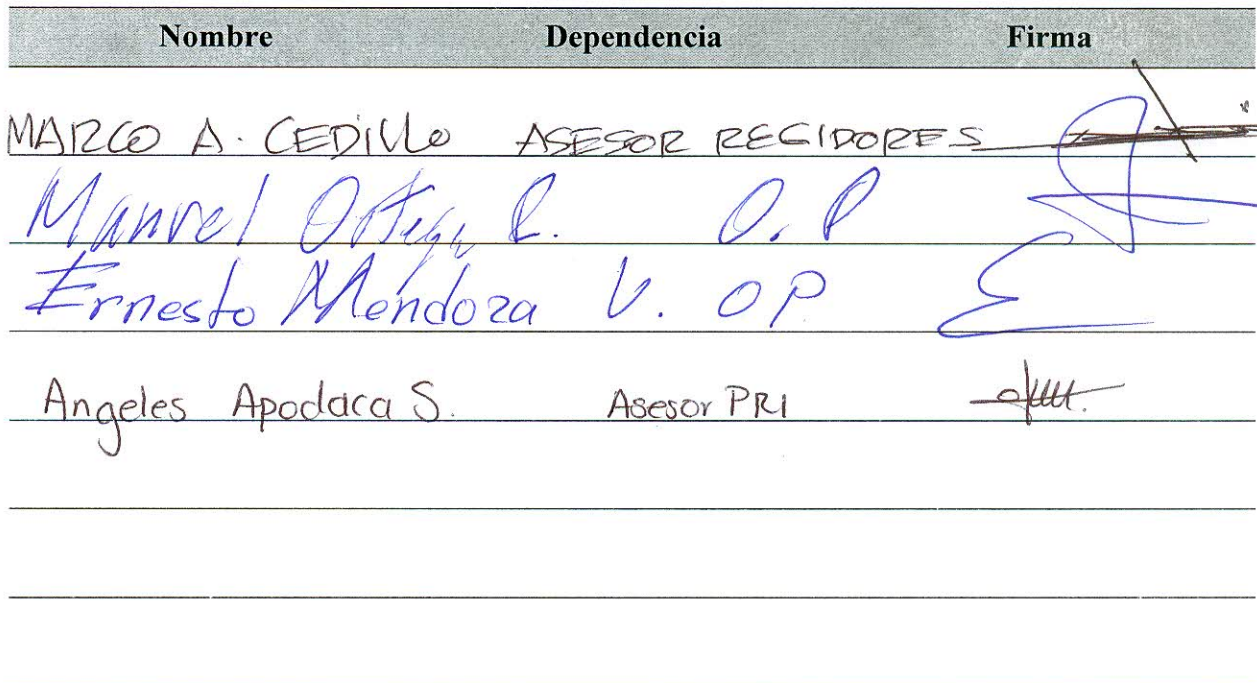 Nombre Dependencia Firma
MARCO A. CEDILLO ASESOR REGIDORES
Manuel Ortega R. O. P
Ernesto Mendoza V. OP
Angeles Apodaca S. Asesor PRI